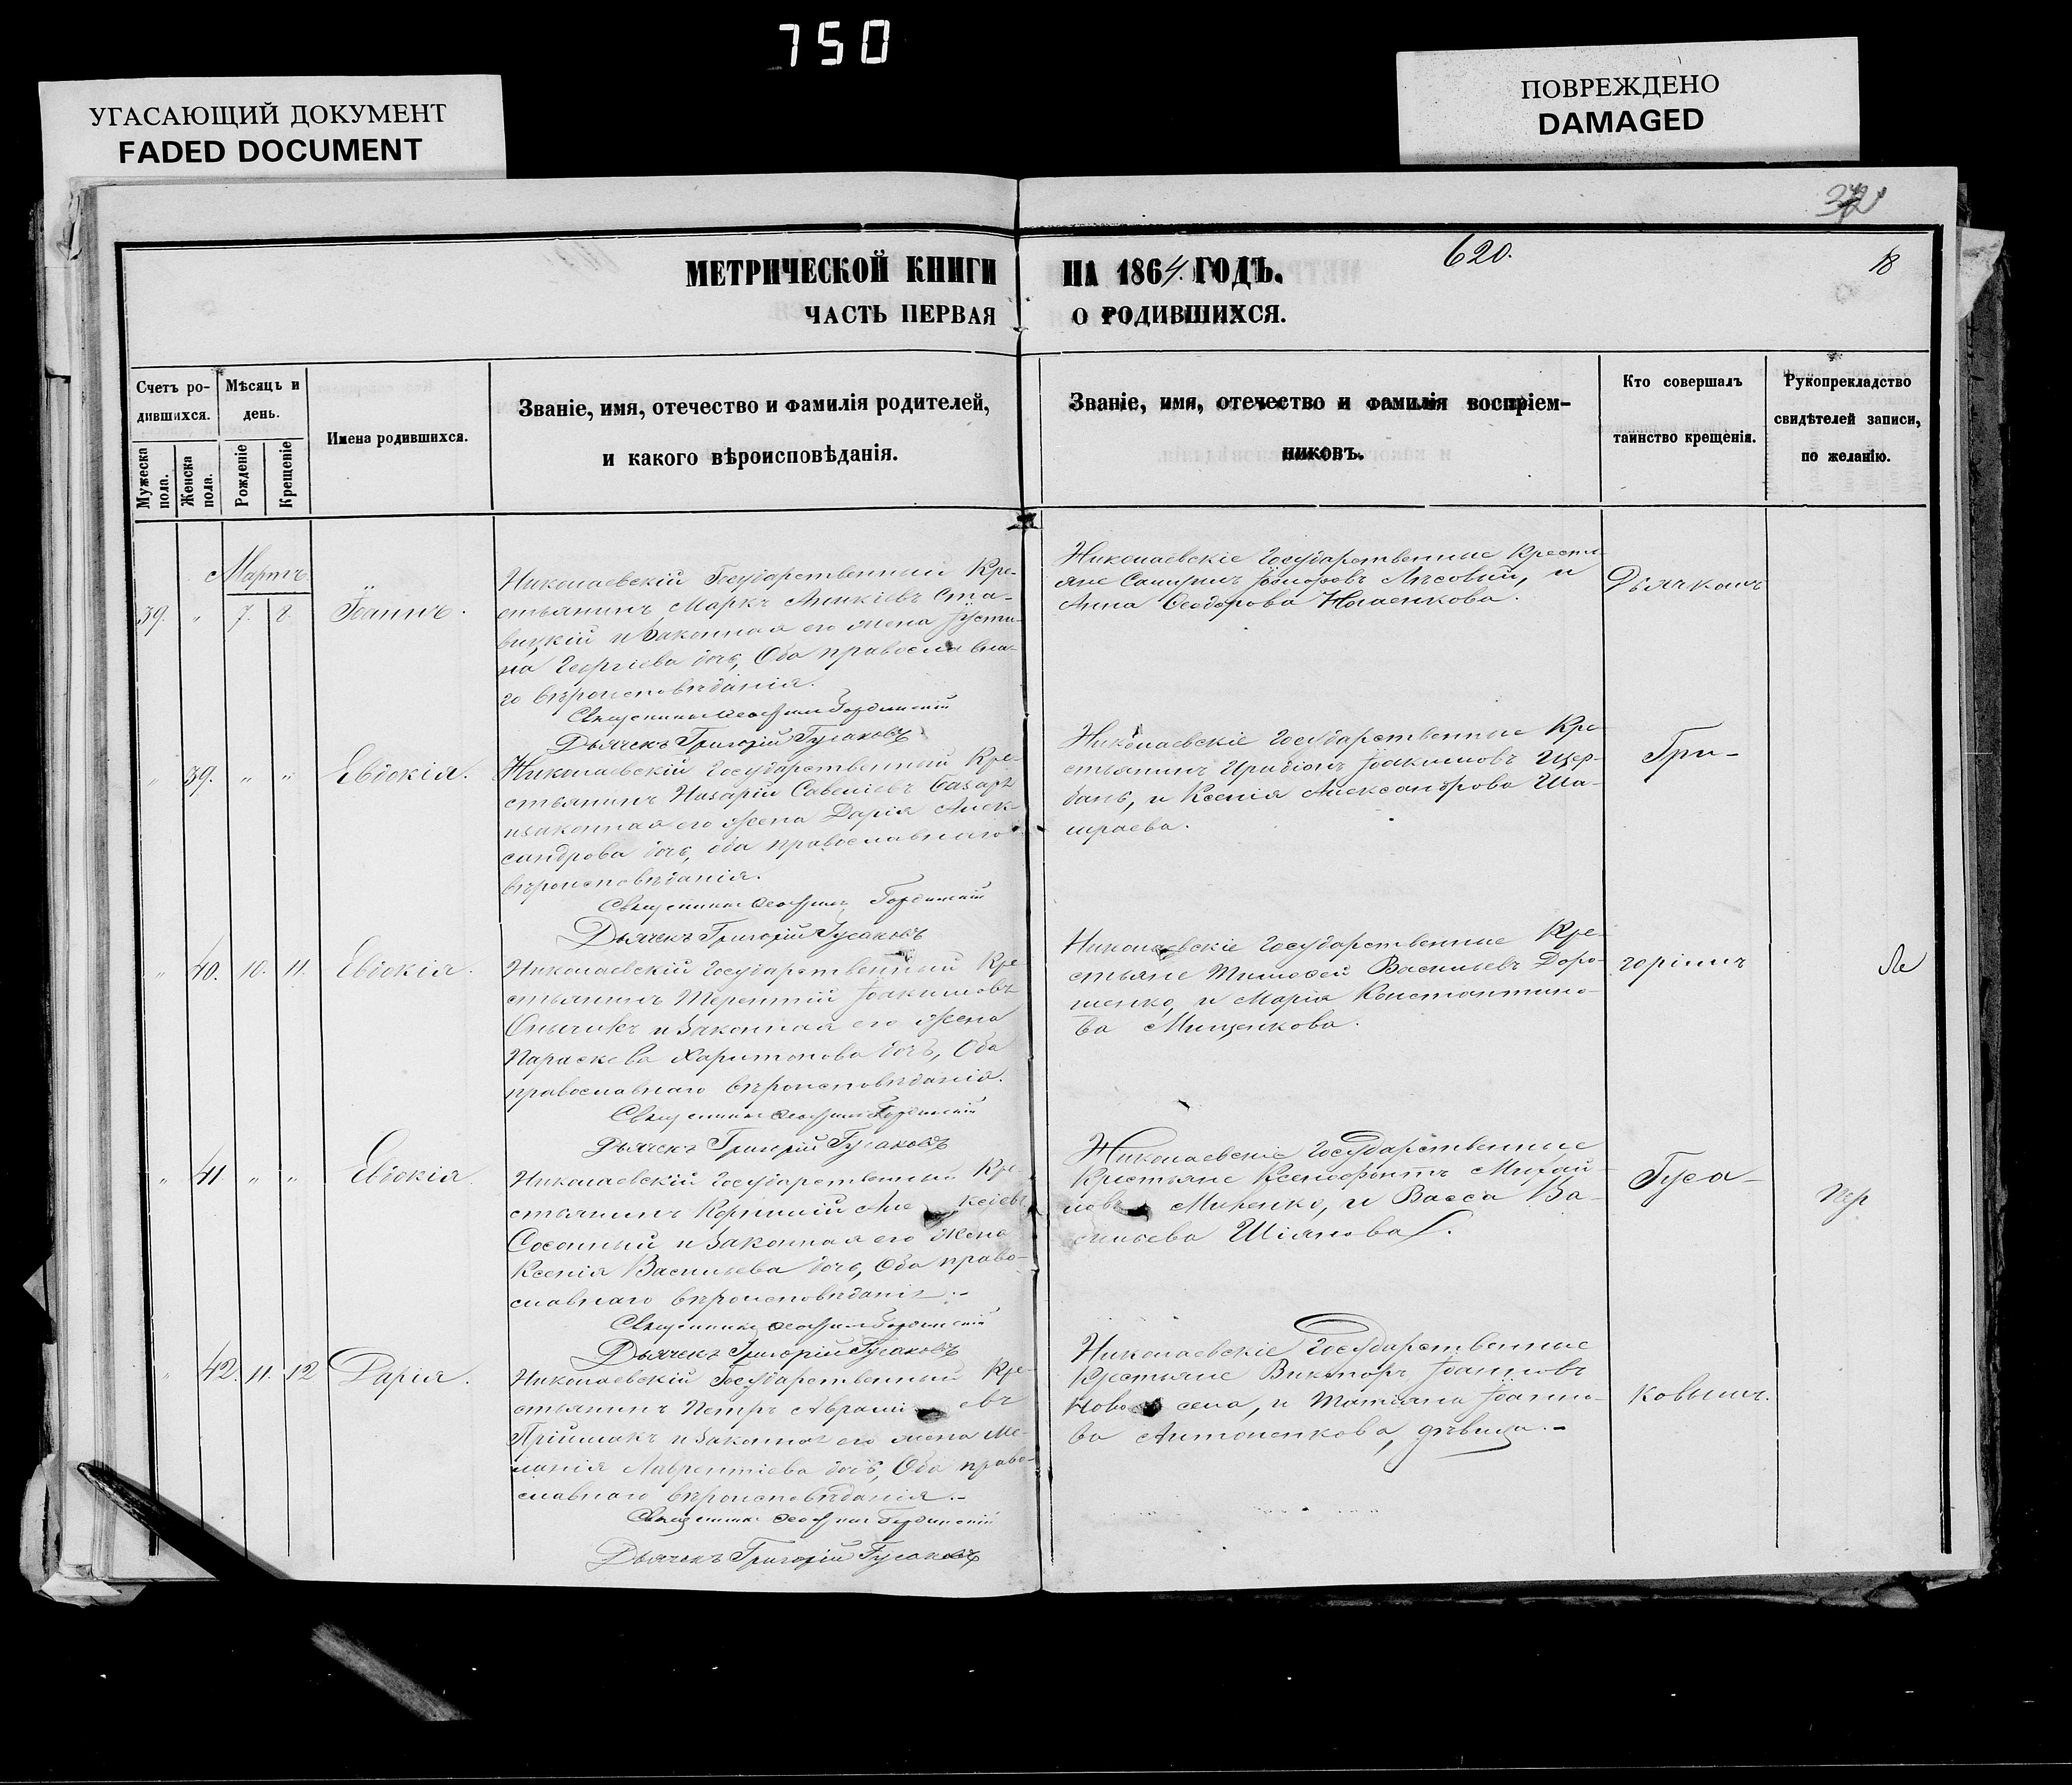 750
УГАСАЮЩИЙ ДОКУМЕНТ
FADED DOCUMENT
ПОВРЕЖДЕНО
DAMAGED
МЕТРИЧЕСКОЙ КНИГИ НА 1864 ГОДЪ.
620.
18
ЧАСТЬ ПЕРВАЯ О РОДИВШИХСЯ.
Счетъ ро-
дившихся.
Мужеска пола.
Женска пола.
Мѣсяцъ и
день.
Рожденіе
Крещеніе
Имена родившихся.
Званіе, имя, отечество и фамилія родителей,
и какого вѣроисповѣданія.
Званіе, имя, отечество и фамилія воспріем-
никовъ.
Кто совершалъ
таинство крещенія.
Рукоприкладство
свидѣтелей записи,
по желанію.
Мартъ
39. " 7. 8. Іоаннъ.
Николаевскій Государственный Кре-
стьянинъ Маркъ
и законная его жена Іусти-
на Георгіева дочь, Оба православна-
го вѣроисповѣданія.
Священникъ
Дьячекъ Григорій Гусаковъ
Николаевскіе Государственные Кресть-
яне Лисовый, и
Анна Ѳеодорова
" 39. " " Евдокія.
Николаевскій Государственный Кре-
стьянинъ Назарій Савеліевъ
и законная его жена Дарія Алек-
сандрова дочь, оба православнаго
вѣроисповѣданія.
Священникъ
Дьячекъ Григорій Гусаковъ
Николаевскіе Государственные Кре-
стьянинъ Іоакимовъ Щер-
бань, и Ксенія Александрова
" 40. 10. 11. Евдокія.
Николаевскій Государственный Кре-
стьянинъ Терентій Іоакимовъ
и законная его жена
Параскева Харитонова дочь, Оба
православнаго вѣроисповѣданія.
Священникъ
Дьячекъ Григорій Гусаковъ
Николаевскіе Государственные Кре-
стьяне Тимофей Васильевъ Доро-
шенко, и Марія Константино-
ва Мищенкова.
" 41. " " Евдокія.
Николаевскій Государственный Кре-
стьянинъ Корнилій Але ксіевъ
и законная его жена
Ксенія Васильева дочь, Оба право-
славнаго вѣроисповѣданія.-
Священникъ
Дьячекъ Григорій Гусаковъ
Николаевскіе Государственные
Крестьяне Ксенофонтъ Михай-
ловъ и Васса Ва-
сильева Шіянова.
" 42. 11. 12 Дарія.
Николаевскій Государственный Кре-
стьянинъ Петръ
Приймакъ и законная его жена Ме-
ланія Лаврентіева дочь, Оба право-
славнаго вѣроисповѣданія.-
Священникъ
Дьячекъ Григорій Гусаковъ
Николаевскіе Государственные
Крестьяне Викторъ Іоанновъ
и Татіяна Іоанно-
ва Антоненкова, дѣвица.-
Дьячкомъ
Гри-
горіемъ
Гуса-
ковымъ.